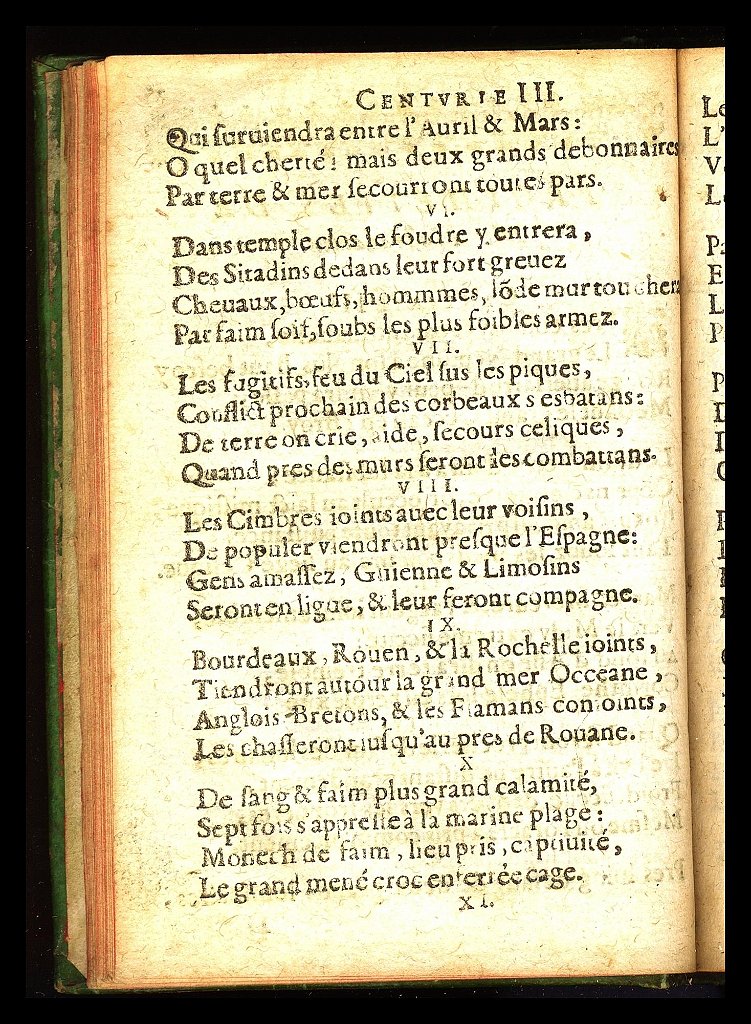 CENTVRIE III.
Qui ſuruiendra entre l'Auril & Mars:
O quel cherté! mais deux grands debonnaires
Par terre & mer ſecourront toutes pars.
VI.
Dans temple clos le foudre y entrera,
Des Sitadins dedans leur fort greuez
Cheuaux, bœufs, hommmes, lõde mur toucher
Par faim ſoif, ſoubs les plus foibles armez.
VII.
Les fugitifs, feu du Ciel ſus les piques,
Conflict prochain des corbeaux s esbatans:
De terre on crie, aide, ſecours celiques,
Quand pres des murs ſeront les combattans.
VIII.
Les Cimbres ioints auec leur voiſins,
De populer viendront preſque l'Eſpagne:
Gens amaſſez, Guienne & Limoſins
Seront en ligue, & leur feront compagne.
IX.
Bourdeaux, Rouen, & la Rochelle ioints,
Tiendront autour la grand mer Occeane,
Anglois Bretons, & les Flamans conioints,
Les chaſſeront iuſqu'au pres de Rouane.
X
De ſang & faim plus grand calamité,
Sept fois s'appreſte à la marine plage:
Monech de faim, lieu pris, captiuité,
Le grand mené croc enferrée cage.
XI.
Le
L'
V
L
P
E
L
P
P
D